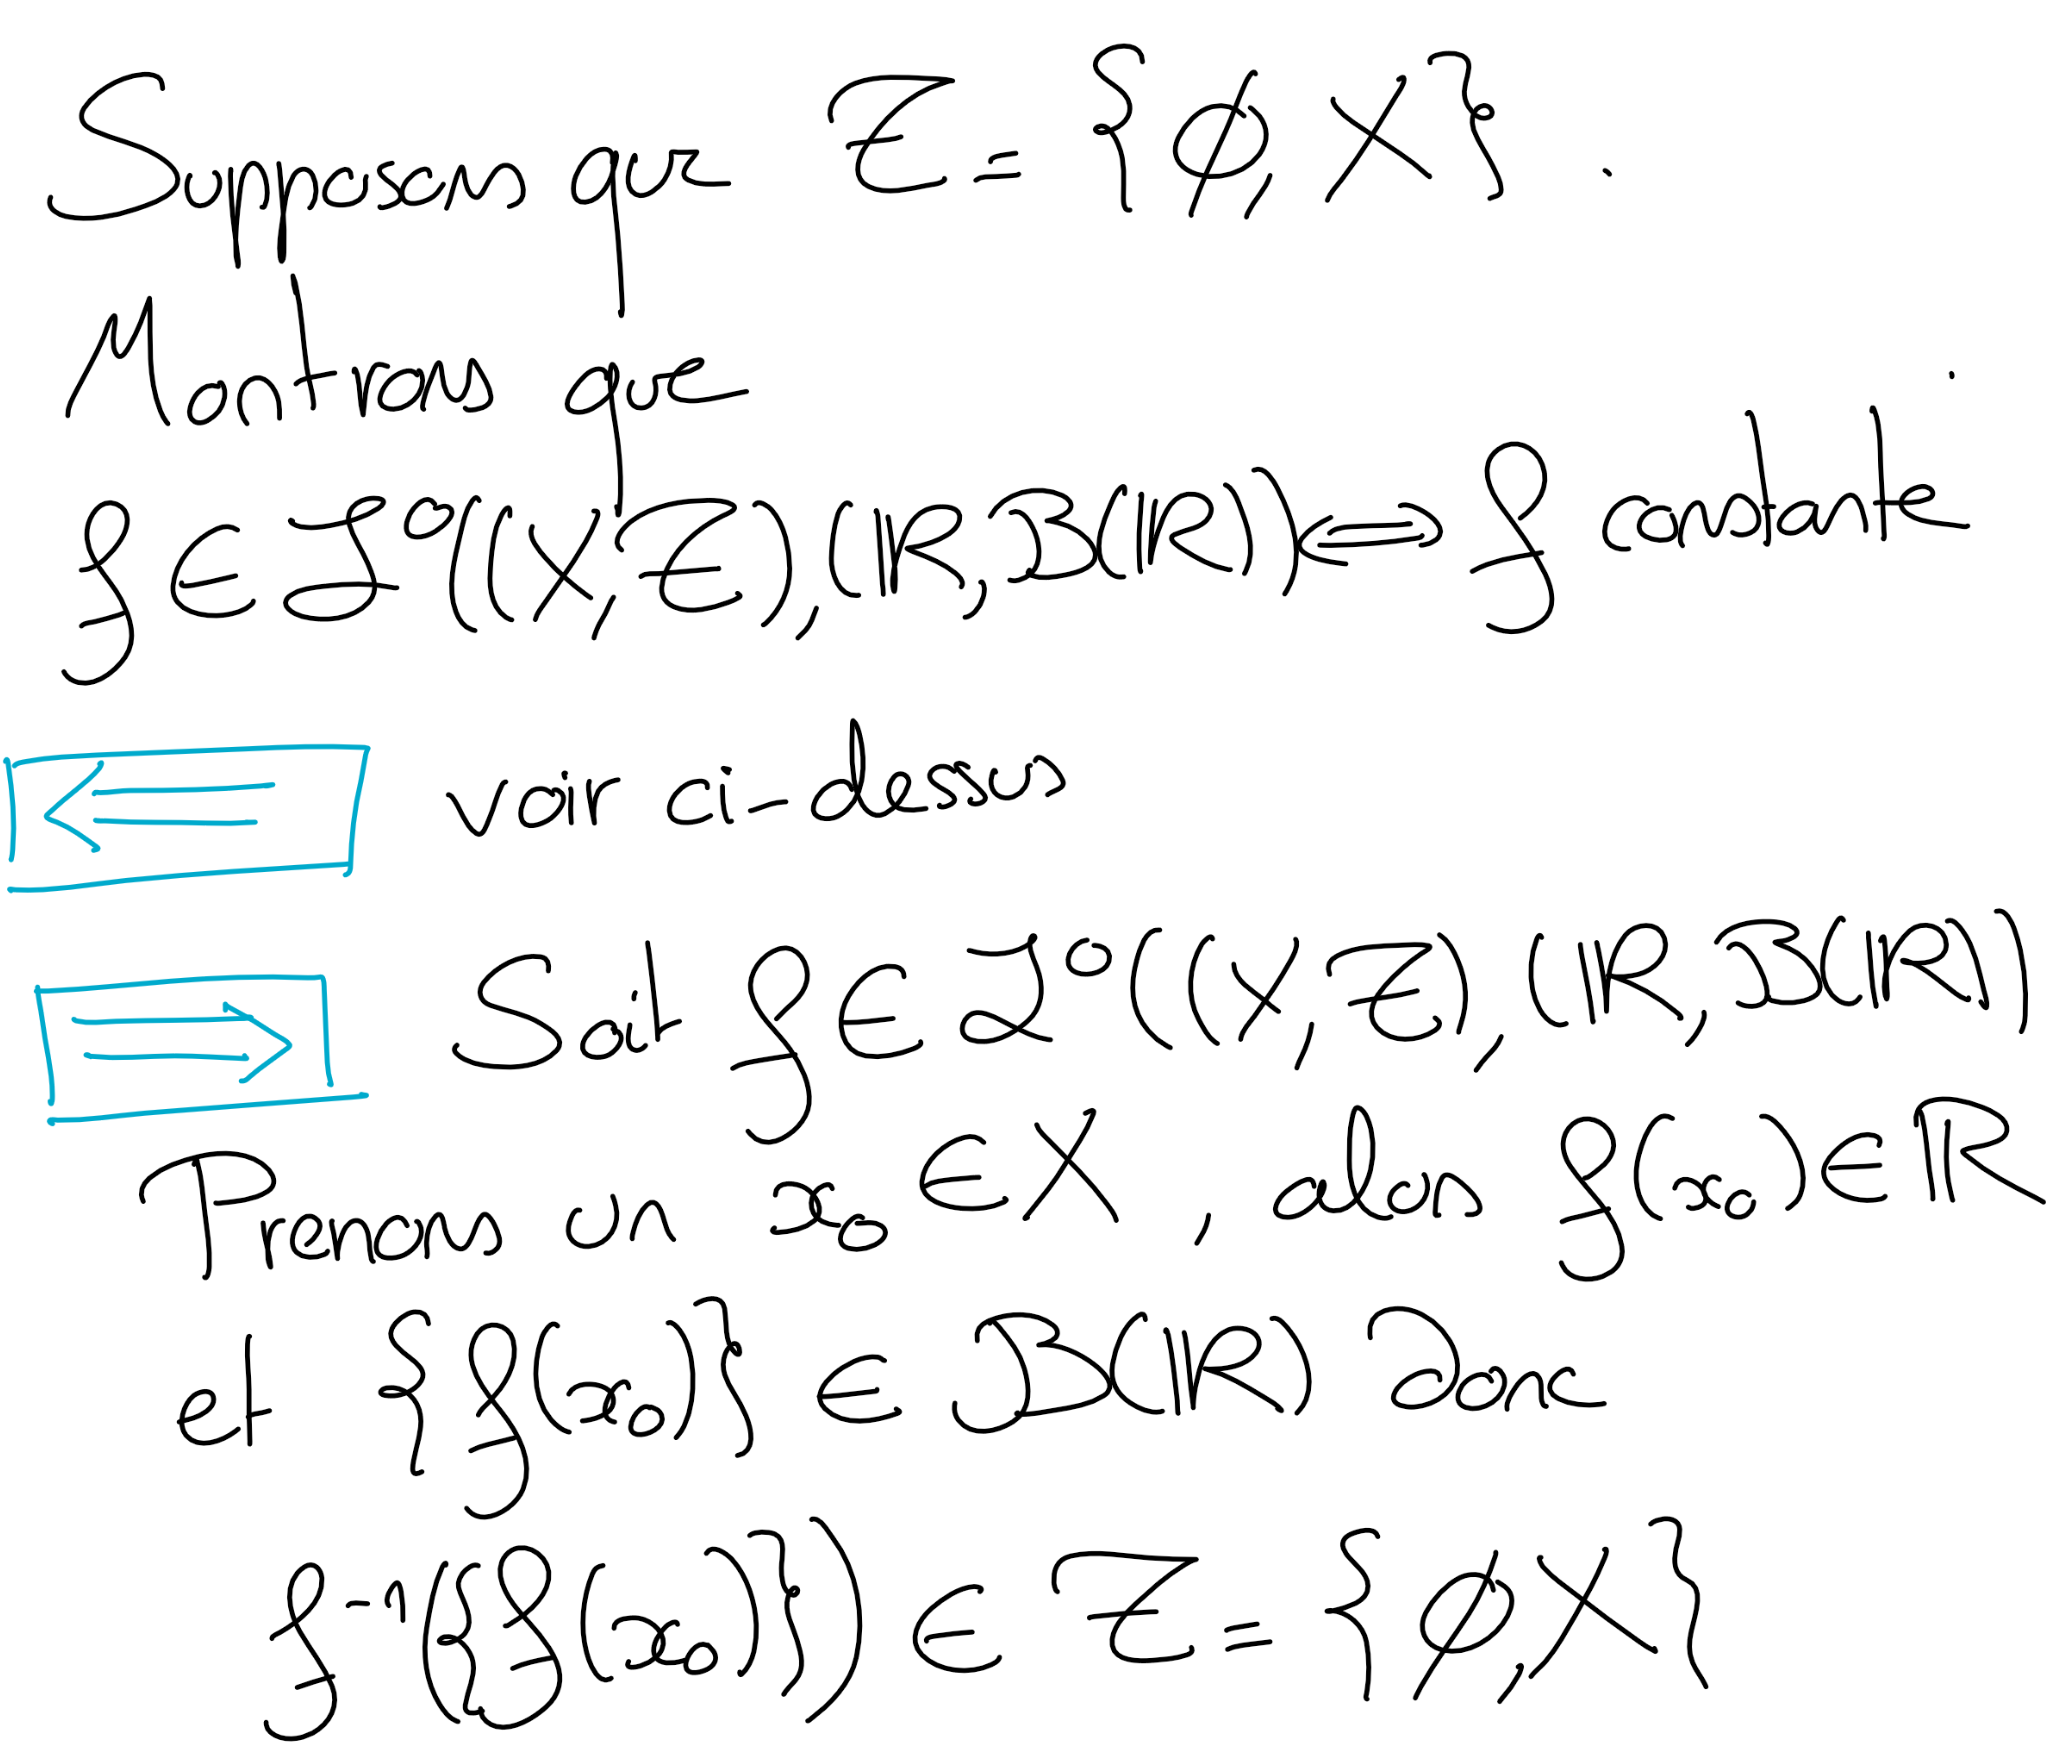 Supposons que Z = {∅, X} .
Montrons que
f ∈ L⁰((X, Z), (ℝ, B(ℝ)) ⟺ f constante
⟸ voir ci-dessus
⟹ Soit f ∈ L⁰((X, Z), (ℝ, B(ℝ))
Prenons un x₀ ∈ X , alors f(x₀) ∈ ℝ
et {f(x₀)} ∈ B(ℝ) donc
f⁻¹({f(x₀)}) ∈ Z = {∅, X}